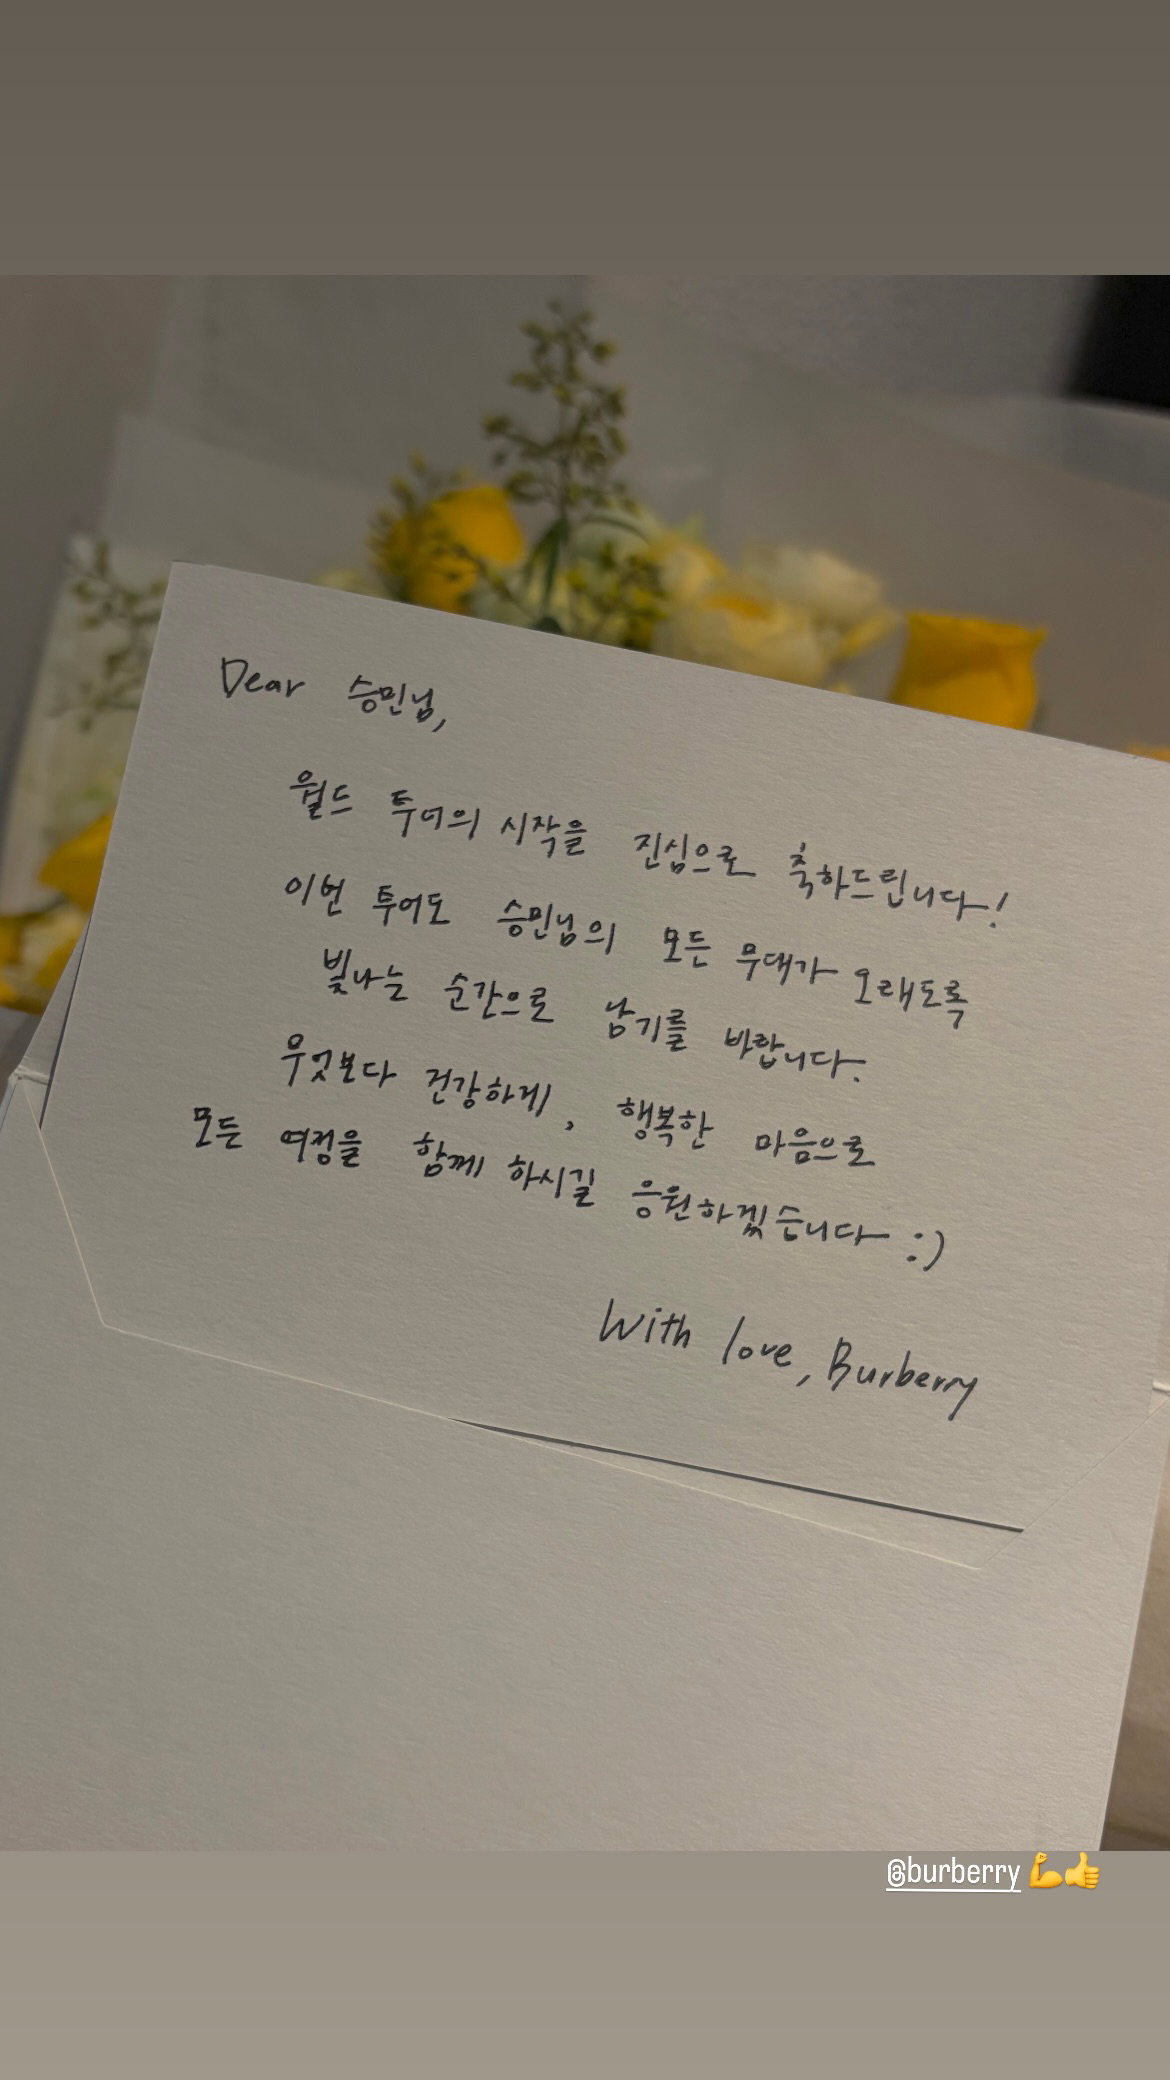 Dear 승민님,
월드 투어의 시작을 진심으로 축하드립니다!
이번 투어도 승민님의 모든 무대가 오래도록
빛나는 순간으로 남기를 바랍니다.
무엇보다 건강하게, 행복한 마음으로
모든 여정을 함께 하시길 응원하겠습니다 :)
With love, Burberry
@burberry 💪👍